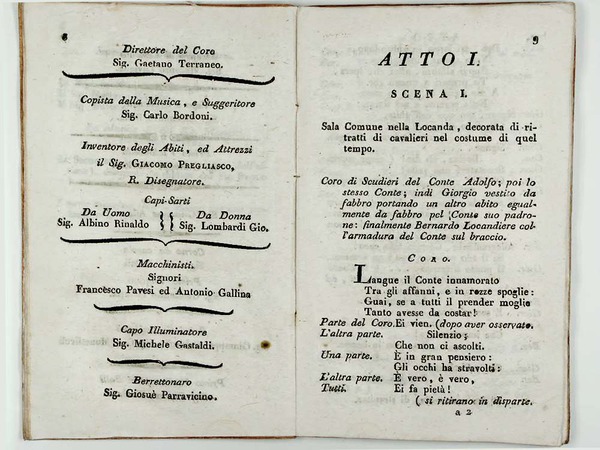 8
Direttore del Coro
Sig. Gaetano Terraneo.
Copista della Musica, e Suggeritore
Sig. Carlo Bordoni.
Inventore degli Abiti, ed Attrezzi
il Sig. GIACOMO PREGLIASCO,
R. Disegnatore.
Capi-Sarti
Da Uomo Da Donna
Sig. Albino Rinaldo Sig. Lombardi Gio.
Macchinisti.
Signori
Francesco Pavesi ed Antonio Gallina
Capo Illuminatore
Sig. Michele Gastaldi.
Berrettonaro
Sig. Giosuè Parravicino.
9
ATTO I.
SCENA I.
Sala Comune nella Locanda, decorata di ri-
tratti di cavalieri nel costume di quel
tempo.
Coro di Scudieri del Conte Adolfo; poi lo
stesso Conte; indi Giorgio vestito da
fabbro portando un altro abito egual-
mente da fabbro pel Conte suo padro-
ne: finalmente Bernardo Locandiere col-
l'armadura del Conte sul braccio.
CORO.
Langue il Conte innamorato
Tra gli affanni, e in rozze spoglie:
Guai, se a tutti il prender moglie
Tanto avesse da costar!
Parte del Coro. Ei vien. (dopo aver osservato.
L'altra parte. Silenzio;
Che non ci ascolti.
Una parte. È in gran pensiero:
Gli occhi ha stravolti:
L'altra parte. È vero, è vero,
Tutti. Ei fa pietà!
(si ritirano in disparte.
a 2